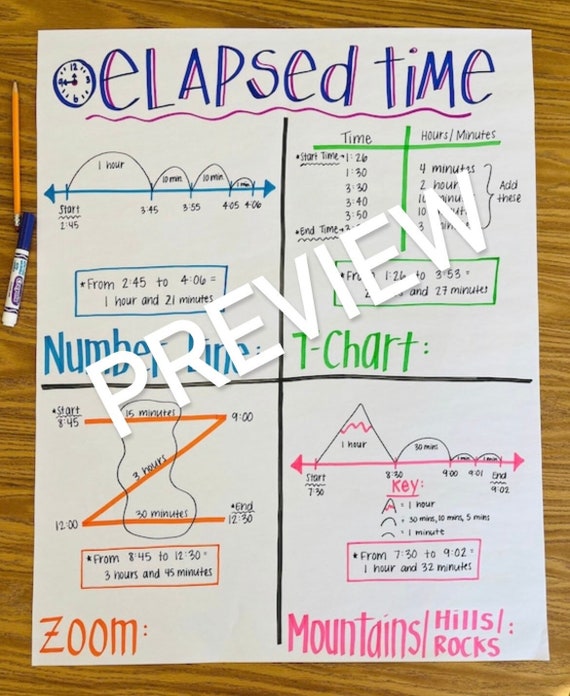 12
3
6
9
ELAPSED TIME
1 hour
10 min
10 min
1 min
Start
2:45
3:45
3:55
4:05
4:06
*From 2:45 to 4:06 =
1 hour and 21 minutes
Number Line:
Time
Hours/Minutes
*Start Time→1:26
1:30
3:30
3:40
3:50
*End Time→
4 minutes
2 hour
10
3
Add
these
*From 1:26 to 3:53 =
and 27 minutes
T-Chart:
*Start
8:45
15 minutes
9:00
3 hours
12:00
30 minutes
*End
12:30
*From 8:45 to 12:30 =
3 hours and 45 minutes
ZOOM:
1 hour
30 mins
1 min
1 min
Start
7:30
8:30
9:00
9:01
End
9:02
Key:
= 1 hour
= 30 mins, 10 mins, 5 mins
= 1 minute
*From 7:30 to 9:02 =
1 hour and 32 minutes
Mountains/Hills/
Rocks:
PREVIEW